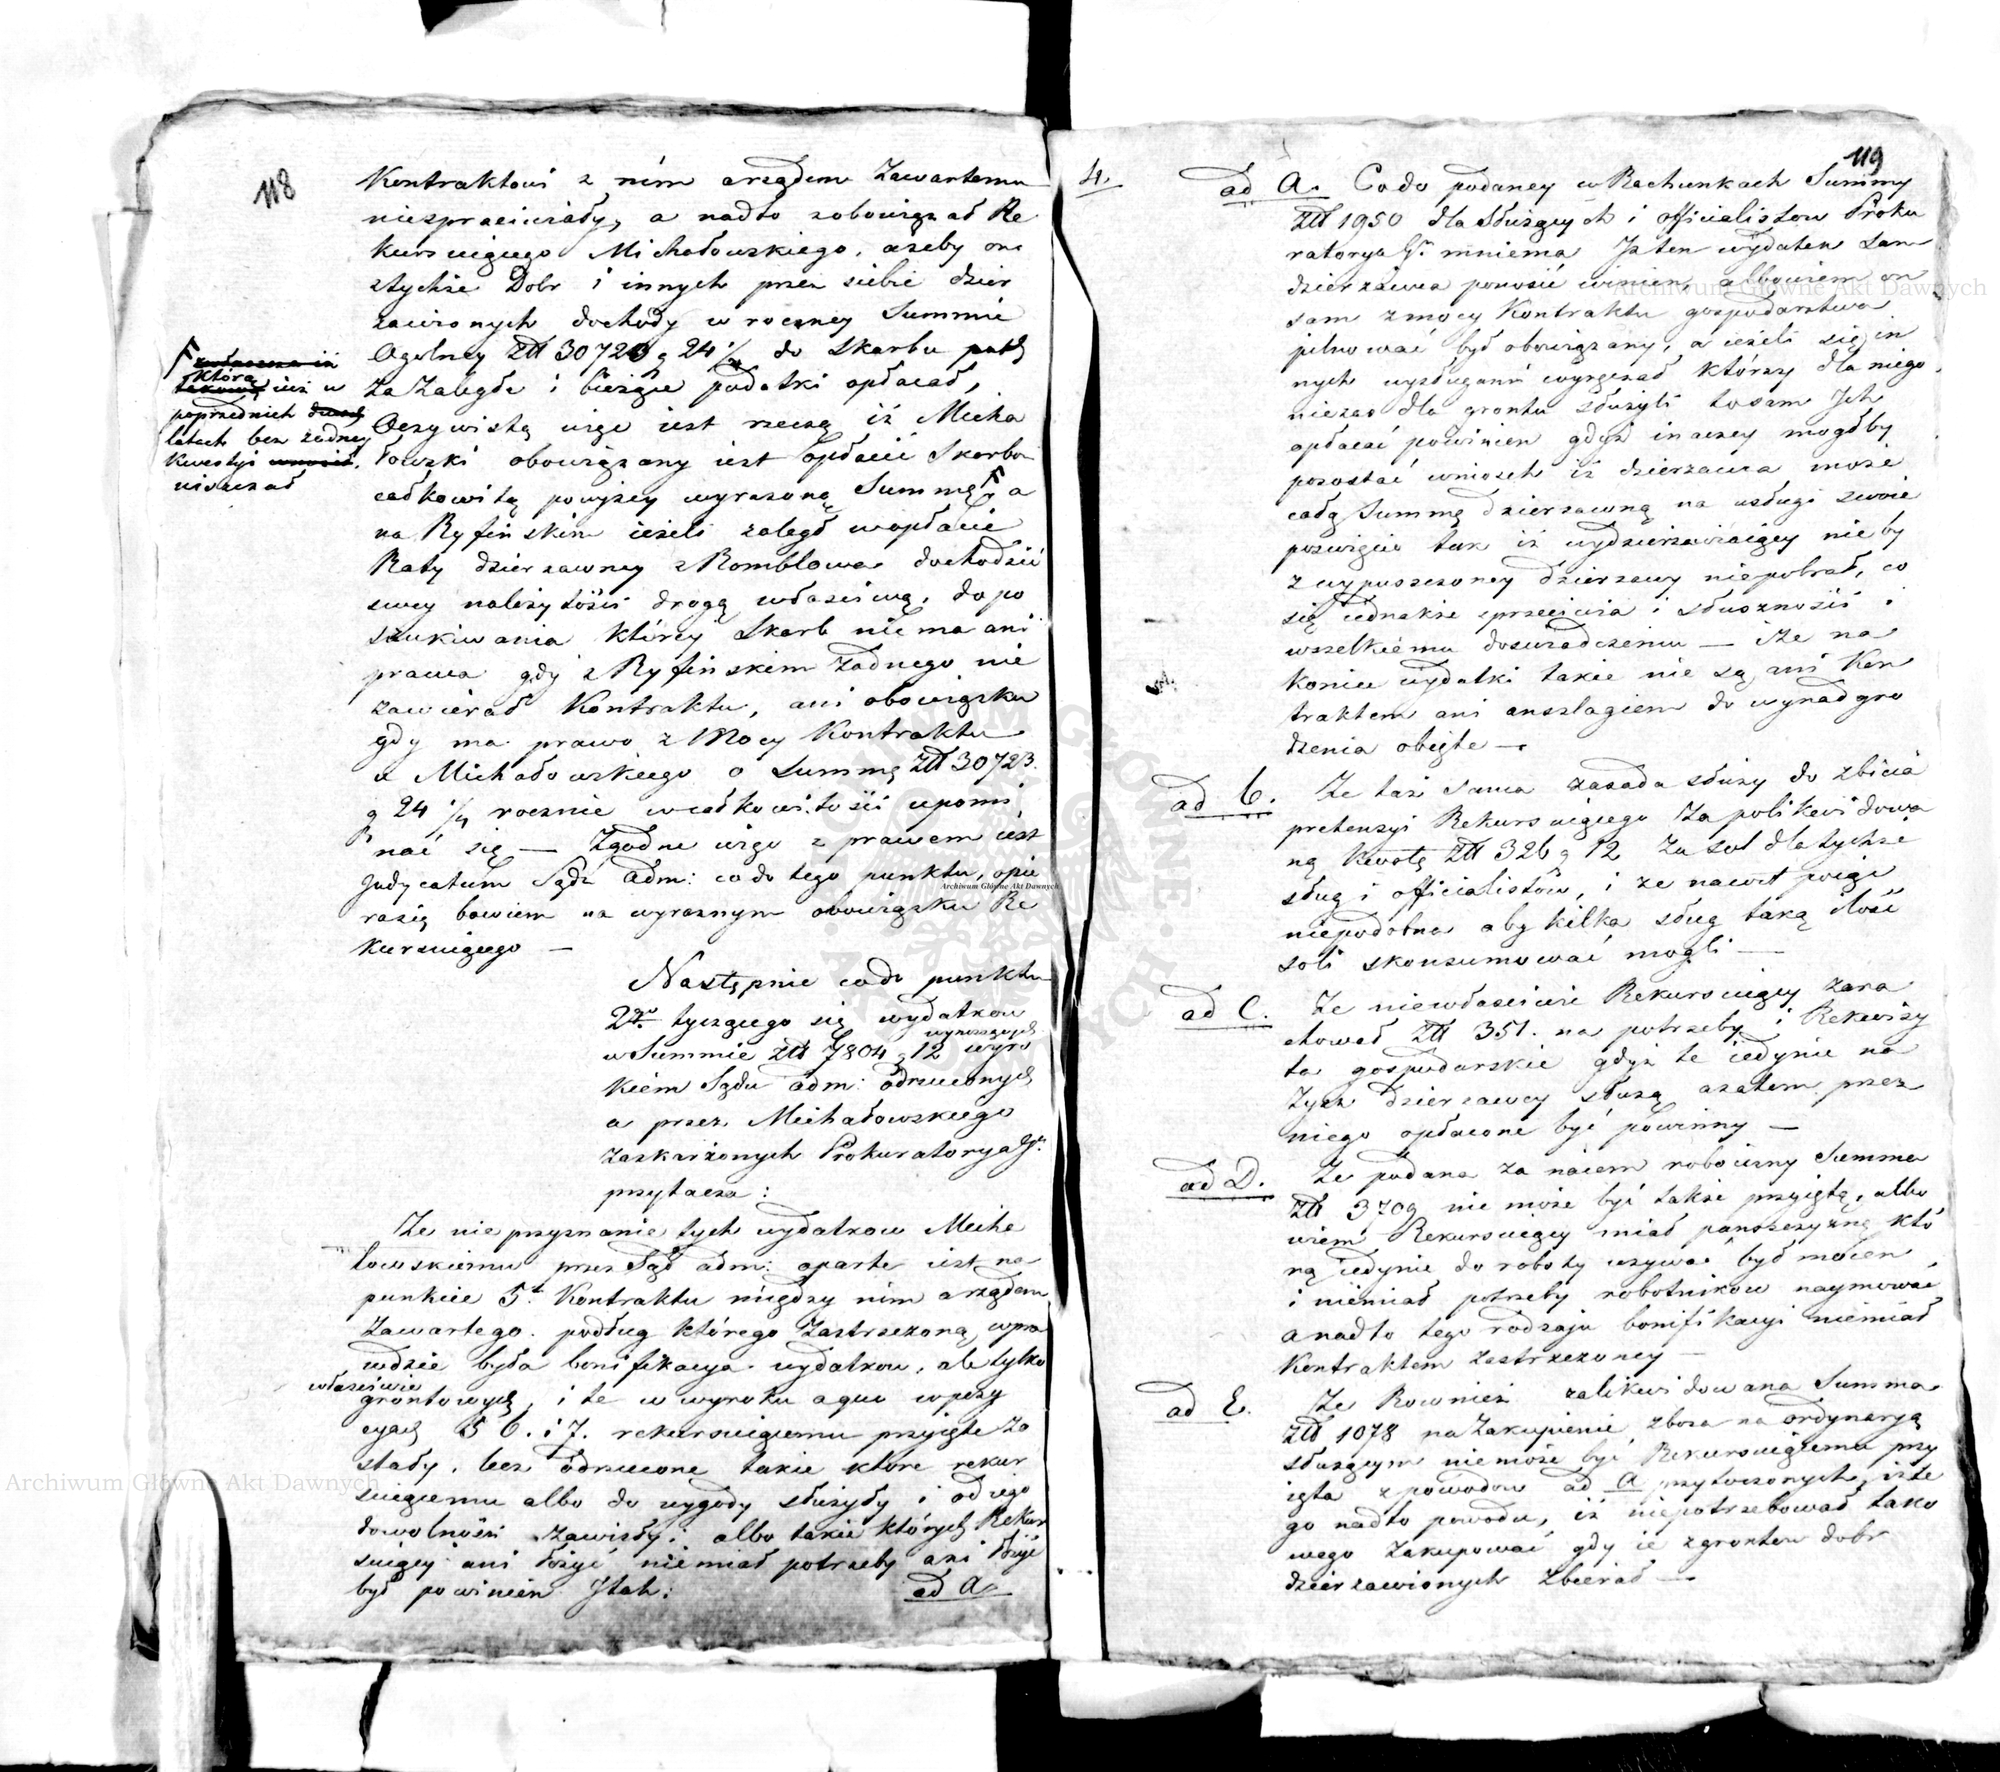 118
Kontraktowi z nim arządem Zawartemu
niesprzeciwiały, a nadto zobowiązał Re
kursuiącego Michałowskiego, ażeby on
ztychże Dobr i innych przez siebie dzier
zawionych dochody w roczney Summie
Ogolney Złł 30723 g 24 1/4 do Skarbu
za Zaległe i bieżące podatki opłacał,
Oczywistą więc iest rzeczą iż Micha
łowski obowiązany iest opłacić Skarbowi
całkowitą powyżey wyrażoną Summę a
na Ryfińskim ieżeli zaległ w opłacie
Raty dzierzawney z Romblowa dochodzić
swey należytości drogą właściwą, do po
szukiwania którey Skarb nie ma ani
prawa gdy z Ryfińskim żadnego nie
zawierał Kontraktu, ani obowiązku
gdy ma prawo z Mocy Kontraktu
u Michałowskiego o Summę Złł 30723.
g 24 1/4 rocznie w całkowitości upomi
nać się — Zgodne więc z prawem iest
Judycatum Sądu adm: co do tego punktu, opie
rasię bowiem na wyraznym obowiązku Re
kursuiącego —
która iuż w
poprzednich
latach bez żadney
kwestyi
uiszczał
Następnie codo punktu
2go tyczącego się wydatkow
wynoszących
w Summie Złł 7804 g 12 wyro
kiem Sądu adm: odrzuconych
a przez Michałowskiego
zaskarżonych Prokuratorya Gn.
przytacza:
Ze nie przyznanie tych wydatkow Micha
łowskiemu przez Sąd adm: oparte iest na
punkcie 5t Kontraktu między nim a rządem
Zawartego. podług którego Zastrzeżoną wpra
wdzie była bonifikacya wydatkow, ale tylko
właściwie
grontowych, i te w wyroku a quo w pozy
cyach 5 6. i 7. rekursuiącemu przyięte zo
stały, lecz odrzucone takie które rekur
suiącemu albo do wygody służyły i od iego
dowolności zawisły; albo takie których Rekur
suiący ani łożyć niemiał potrzeby ani łożyć
był powinien Jtak:
ad A.
4.
119
ad A. Codo podaney w Rachunkach Summy
Złł 1950 dla służących i officialistow Proku
ratorya Gn. mniema Jż ten wydatek Sam
dzierżawca ponosić winien albowiem on
sam z mocy Kontraktu gospodarstwa
pilnować był obowiązany, a ieżeli się in
nych wysługami wyręczał którzy dla niego
nie zaś dla grontu służyli to sam Jch
opłacać powinien gdyż inaczey mogłby
pozostać wniosek iż dzierżawca może
całą Summę dzierzawną na usługi swoie
poświęcić tak iż wydzierzawiaiący nie by
z wypuszczoney dzierzawy niepobrał, co
się iednakże sprzeciwia i słuszności i
wszelkiemu doswiadczeniu — iże na
koniec wydatki takie nie są ani Kon
traktem ani anszlagiem do wynadgro
dzenia obięte —
ad b. Ze taż sama zasada służy do zbicia
pretensyi Rekursuiącego Za polikwidowa
ną Kwotę Złł 326 g 12 Za sol dla tychże
sług i officialistów, i ze nawet poiąć
niepodobna aby kilka sług taką ilość
soli skonsumować mogli —
ad C. Ze niewłaściwie Rekursuiący zara
chował Złł 351. na potrzeby i Rekwizy
ta gospodarskie gdyż te iedynie na
Zysk dzierzawcy służą azatem przez
niego opłacone być powinny —
ad D. Ze podana za naiem robocizny Summa
Złł 3709 nie może być także przyiętą, albo
wiem Rekursuiący miał panszczyznę któ
rą iedynie do roboty uzywać był mocen
i niemiał potrzeby robotnikow naymować
a nadto tego rodzaju bonifikacyi niemiał
Kontraktem zastrzeżoney —
ad E. Ze Rownież zalikwidowana Summa
Złł 1078 na Zakupienie zboza na ordynaryą
służącym niemoże być Rekursuiącemu przy
ięta z powodow ad A przytoczonych, i z te
go nadto powodu, iż niepotrzebował tako
wego Zakupować gdy ie z grontow dobr
dzierzawionych zbierał —
Archiwum Główne Akt Dawnych
Archiwum Główne Akt Dawnych
Archiwum Główne Akt Dawnych